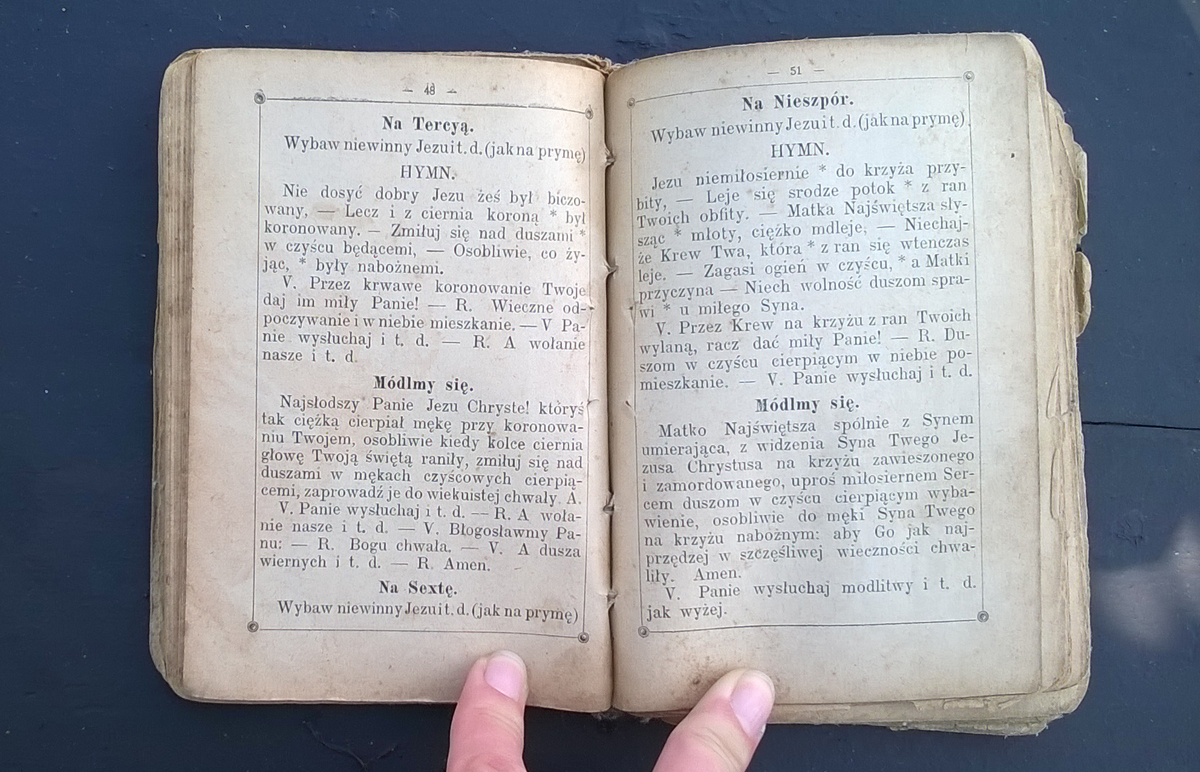 — 48 —
Na Tercyą.
Wybaw niewinny Jezu i t. d. (jak na prymę)
HYMN.
Nie dosyć dobry Jezu żeś był biczo-
wany, — Lecz i z ciernia koroną * był
koronowany. — Zmiłuj się nad duszami *
w czyścu będącemi, — Osobliwie, co ży-
jąc, * były nabożnemi.
V. Przez krwawe koronowanie Twoje
daj im miły Panie! — R. Wieczne od-
poczywanie i w niebie mieszkanie. — V Pa-
nie wysłuchaj i t. d. — R. A wołanie
nasze i t. d.
Módlmy się.
Najsłodszy Panie Jezu Chryste! któryś
tak ciężką cierpiał mękę przy koronowa-
niu Twojem, osobliwie kiedy kolce ciernia
głowę Twoją świętą raniły, zmiłuj się nad
duszami w mękach czyścowych cierpią-
cemi, zaprowadź je do wiekuistej chwały A.
V. Panie wysłuchaj i t. d. — R. A woła-
nie nasze i t. d. — V. Błogosławmy Pa-
nu: — R. Bogu chwała. — V. A dusza
wiernych i t. d. — R. Amen.
Na Sextę.
Wybaw niewinny Jezu i t. d. (jak na prymę)
— 51 —
Na Nieszpór.
Wybaw niewinny Jezu i t. d. (jak na prymę).
HYMN.
Jezu niemiłosiernie * do krzyża przy-
bity, — Leje się srodze potok * z ran
Twoich obfity. — Matka Najświętsza sły-
sząc * młoty, ciężko mdleje, — Niechaj-
że Krew Twa, która * z ran się wtenczas
leje. — Zagasi ogień w czyścu, * a Matki
przyczyna — Niech wolność duszom spra-
wi * u miłego Syna.
V. Przez Krew na krzyżu z ran Twoich
wylaną, racz dać miły Panie! — R. Du-
szom w czyścu cierpiącym w niebie po-
mieszkanie. — V. Panie wysłuchaj i t. d.
Módlmy się.
Matko Najświętsza spólnie z Synem
umierająca, z widzenia Syna Twego Je-
zusa Chrystusa na krzyżu zawieszonego
i zamordowanego, uproś miłosiernem Ser-
cem duszom w czyścu cierpiącym wyba-
wienie, osobliwie do męki Syna Twego
na krzyżu nabożnym: aby Go jak naj-
przędzej w szczęśliwej wieczności chwa-
liły. Amen.
V. Panie wysłuchaj modlitwy i t. d.
jak wyżej.